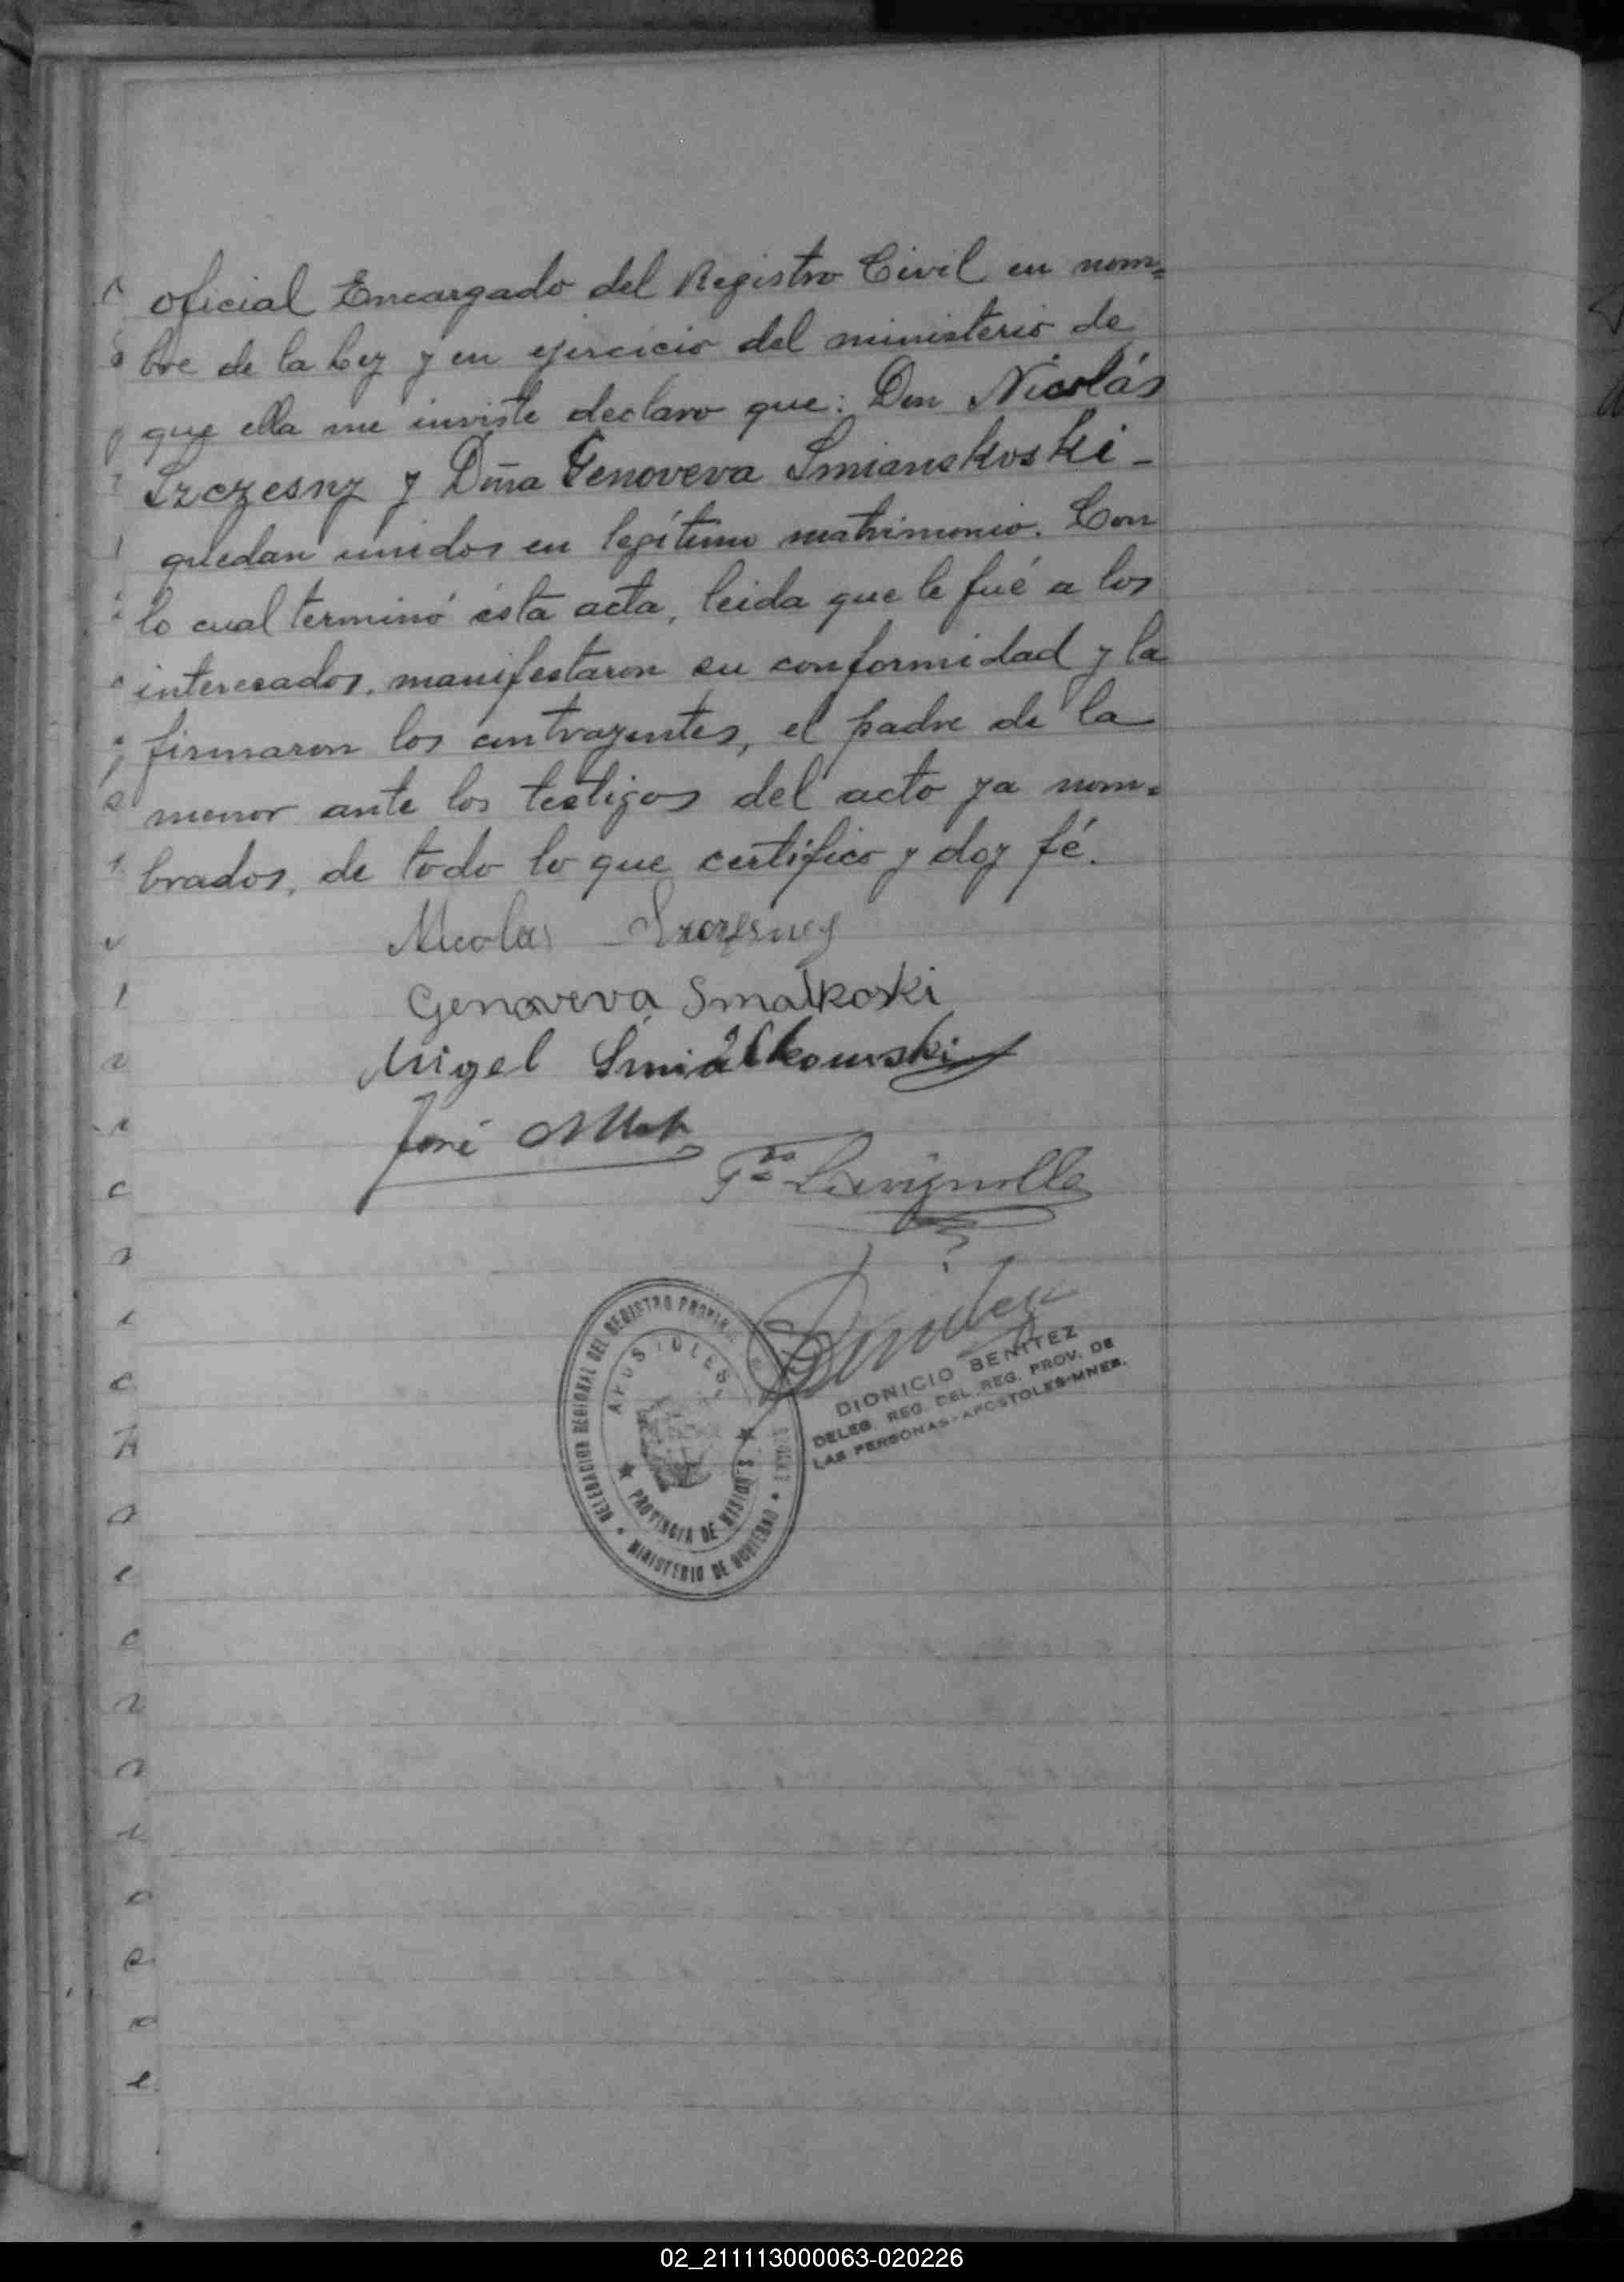 oficial Encargado del Registro Civil en nom=
bre de la Ley y en ejercicio del ministerio de
que ella me inviste declaro que: Don Nicolás
Szczesny y Dña Genoveva Smianskoski -
quedan unidos en legítimo matrimonio. Con
lo cual terminó ésta acta, leida que le fué a los
interesados, manifestaron su conformidad y la
firmaron los contrayentes, el padre de la
menor ante los testigos del acto ya nom=
brados, de todo lo que certifico y doy fé.
Nicolas Szczesny
Genoveva Smalkoski
Migel Smiałkowski
José
DELEGACION REGIONAL DEL REGISTRO PROVINCIAL
APOSTOLES
PROVINCIA DE MISIONES
MINISTERIO DE GOBIERNO
DIONICIO BENITEZ
DELEG. REG. DEL REG. PROV. DE
LAS PERSONAS - APOSTOLES-MNES.
02_211113000063-020226